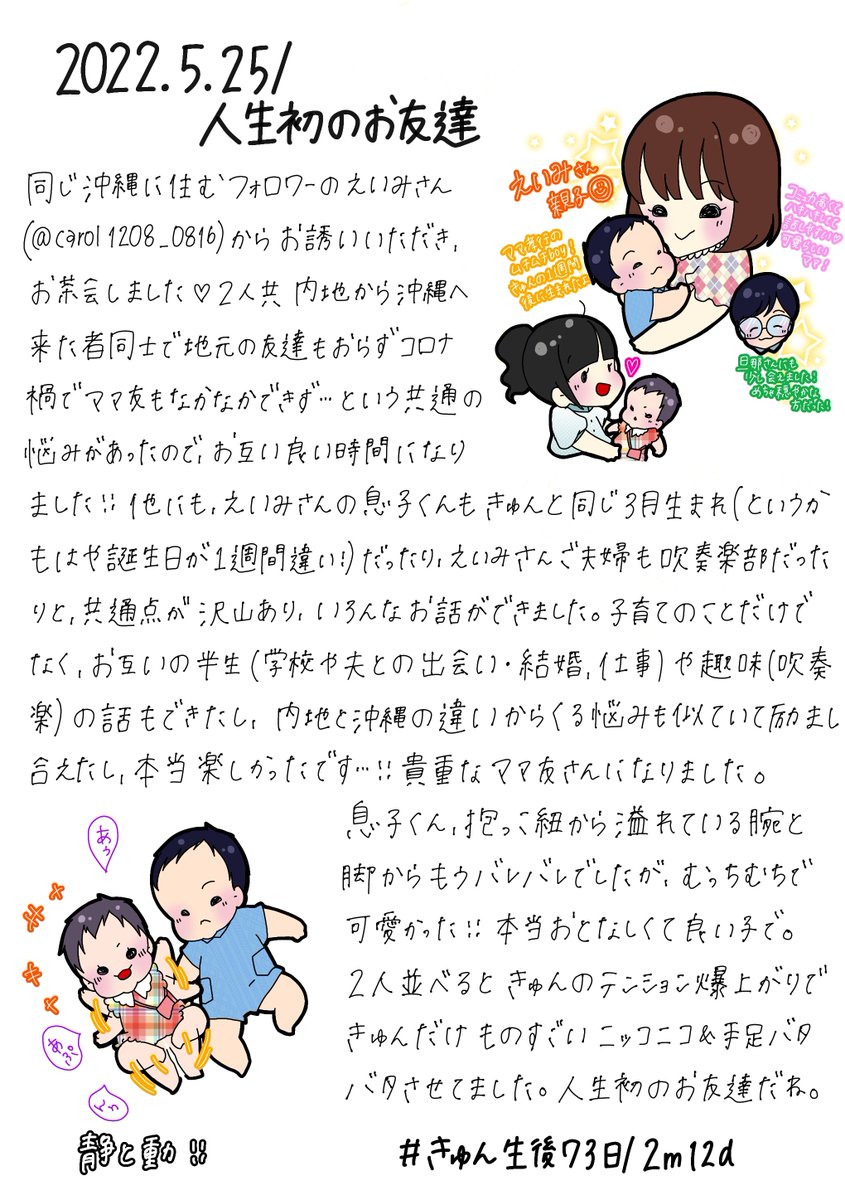 2022.5.25/
人生初のお友達
同じ沖縄に住むフォロワーのえいみさん
(@carol1208_0816)からお誘いいただき,
お茶会しました♡2人共 内地から沖縄へ
来た者同士で地元の友達もおらずコロナ
禍でママ友もなかなかできず…という共通の
悩みがあったので,お互い良い時間になり
ました!!他にも,えいみさんの息子くんもきゅんと同じ3月生まれ(というか
もはや誕生日が1週間違い!)だったり,えいみさんご夫婦も吹奏楽部だった
りと,共通点が沢山あり,いろんなお話ができました。子育てのことだけで
なく,お互いの半生(学校や夫との出会い・結婚,仕事)や趣味(吹奏
楽)の話もできたし, 内地と沖縄の違いからくる悩みも似ていて励まし
合えたし,本当楽しかったです…!!貴重なママ友さんになりました。
えいみさん
親子
コミュ力高くて
ハキハキしてて
話しやすい♡
可愛らしい
ママ!
ママ似の
ムチムチboy!
きゅんの1週間
後に生まれたよ
旦那さんにも
少し会えました!
めちゃ穏やかな
方だた!
息子くん,抱っこ紐から溢れている腕と
脚からもうバレバレでしたが,むっちむちで
可愛かった!!本当おとなしくて良い子で。
2人並べると きゅんのテンション爆上がりで
きゅんだけ ものすごい ニッコニコ&手足バタ
バタさせてました。人生初のお友達だね。
あぅ
あぷ。
うっ
静と動!!
#きゅん生後73日/2m12d